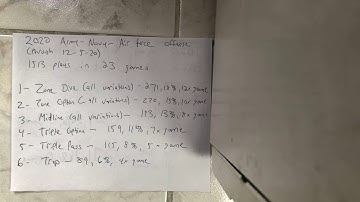 2020 Army-Navy-Air Force offense
(through 12-5-20)
1513 plays in 23 games
1- Zone Dive (all variations) - 271, 18%, 12x game
2- Zone Option (all variations) - 220, 15%, 10x game
3- Midline (all variations) - 193, 13%, 8x game
4- Triple Option - 159, 11%, 7x game
5- Triple Pass - 115, 8%, 5x game
6- Trap - 89, 6%, 4x game